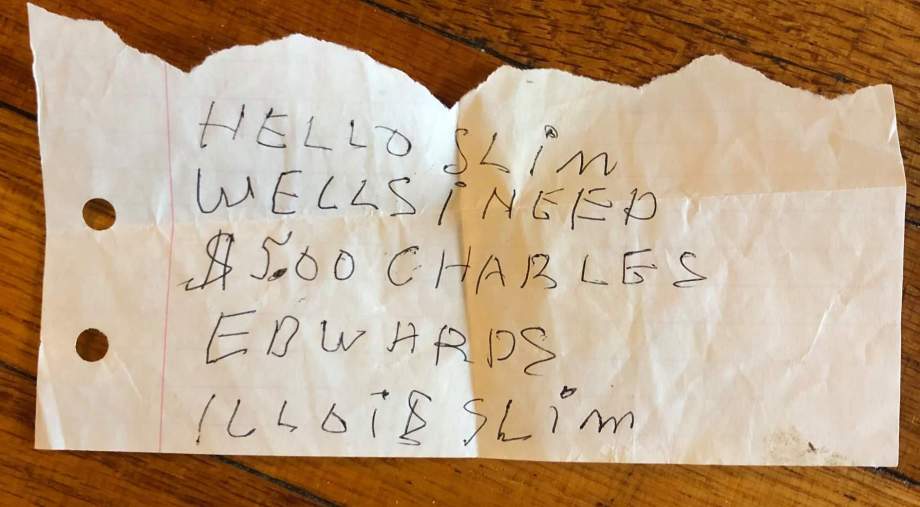 HELLO SLiM
WELLS i NEED
$5.00 CHARLES
EDWARDS
ILLOiS SLiM